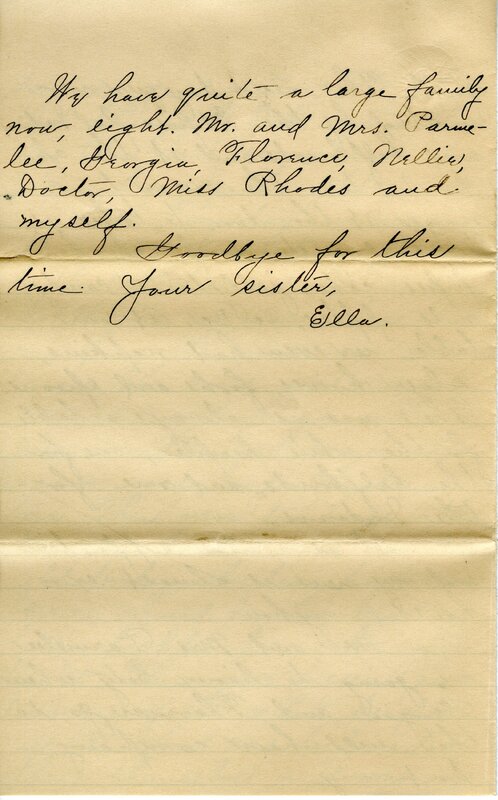 We have quite a large family
now, eight. Mr. and Mrs. Parme-
lee, Georgia, Florence, Nellie,
Doctor, Miss Rhodes and
myself.
Goodbye for this
time. Your sister,
Ella.